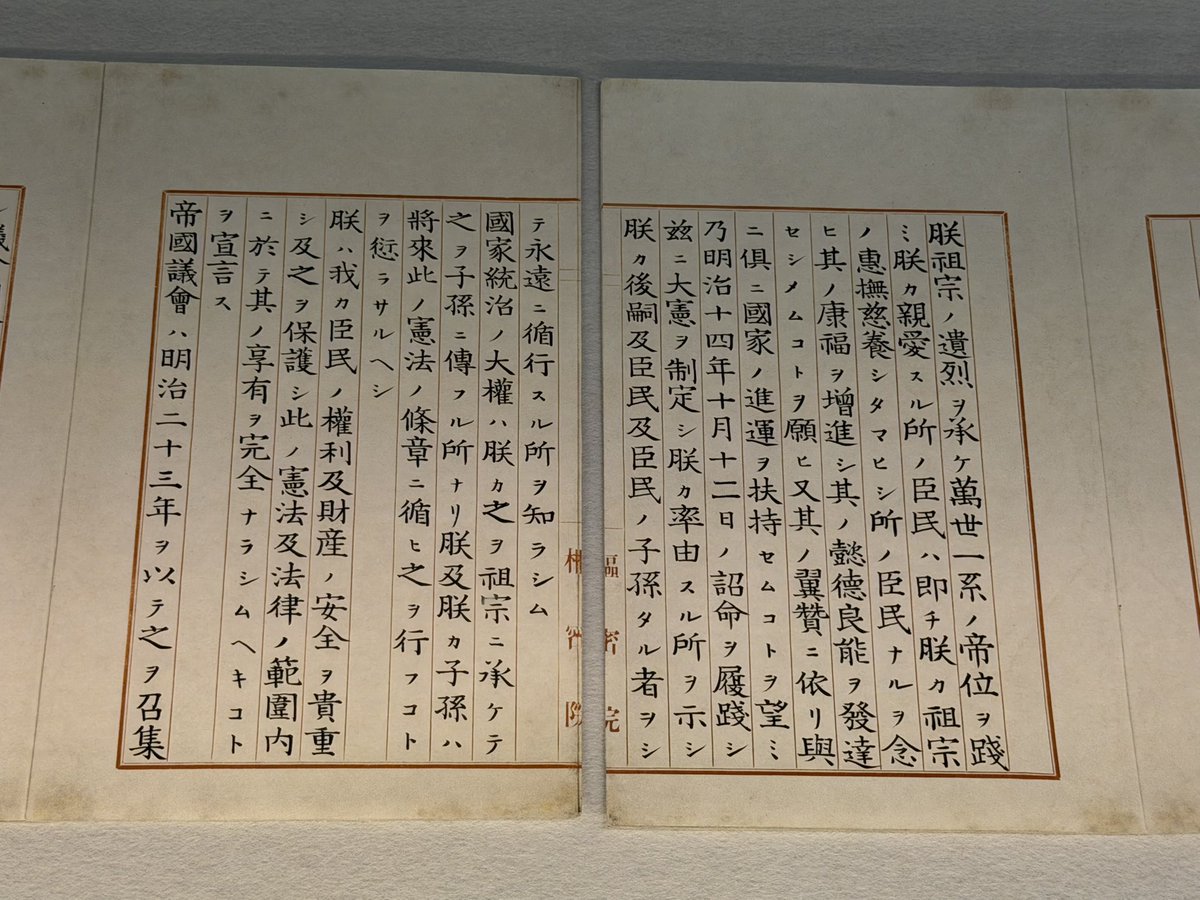 朕祖宗ノ遺烈ヲ承ケ萬世一系ノ帝位ヲ踐
ミ朕カ親愛スル所ノ臣民ハ即チ朕カ祖宗
ノ惠撫慈養シタマヒシ所ノ臣民ナルヲ念
ヒ其ノ康福ヲ增進シ其ノ懿德良能ヲ發達
セシメムコトヲ願ヒ又其ノ翼贊ニ依リ與
ニ俱ニ國家ノ進運ヲ扶持セムコトヲ望ミ
乃明治十四年十月十二日ノ詔命ヲ履踐シ
玆ニ大憲ヲ制定シ朕カ率由スル所ヲ示シ
朕カ後嗣及臣民及臣民ノ子孫タル者ヲシ
樞密院
テ永遠ニ循行スル所ヲ知ラシム
國家統治ノ大權ハ朕カ之ヲ祖宗ニ承ケテ
之ヲ子孫ニ傳フル所ナリ朕及朕カ子孫ハ
將來此ノ憲法ノ條章ニ循ヒ之ヲ行フコト
ヲ愆ラサルヘシ
朕ハ我カ臣民ノ權利及財産ノ安全ヲ貴重
シ及之ヲ保護シ此ノ憲法及法律ノ範圍内
ニ於テ其ノ享有ヲ完全ナラシムヘキコト
ヲ宣言ス
帝國議會ハ明治二十三年ヲ以テ之ヲ召集